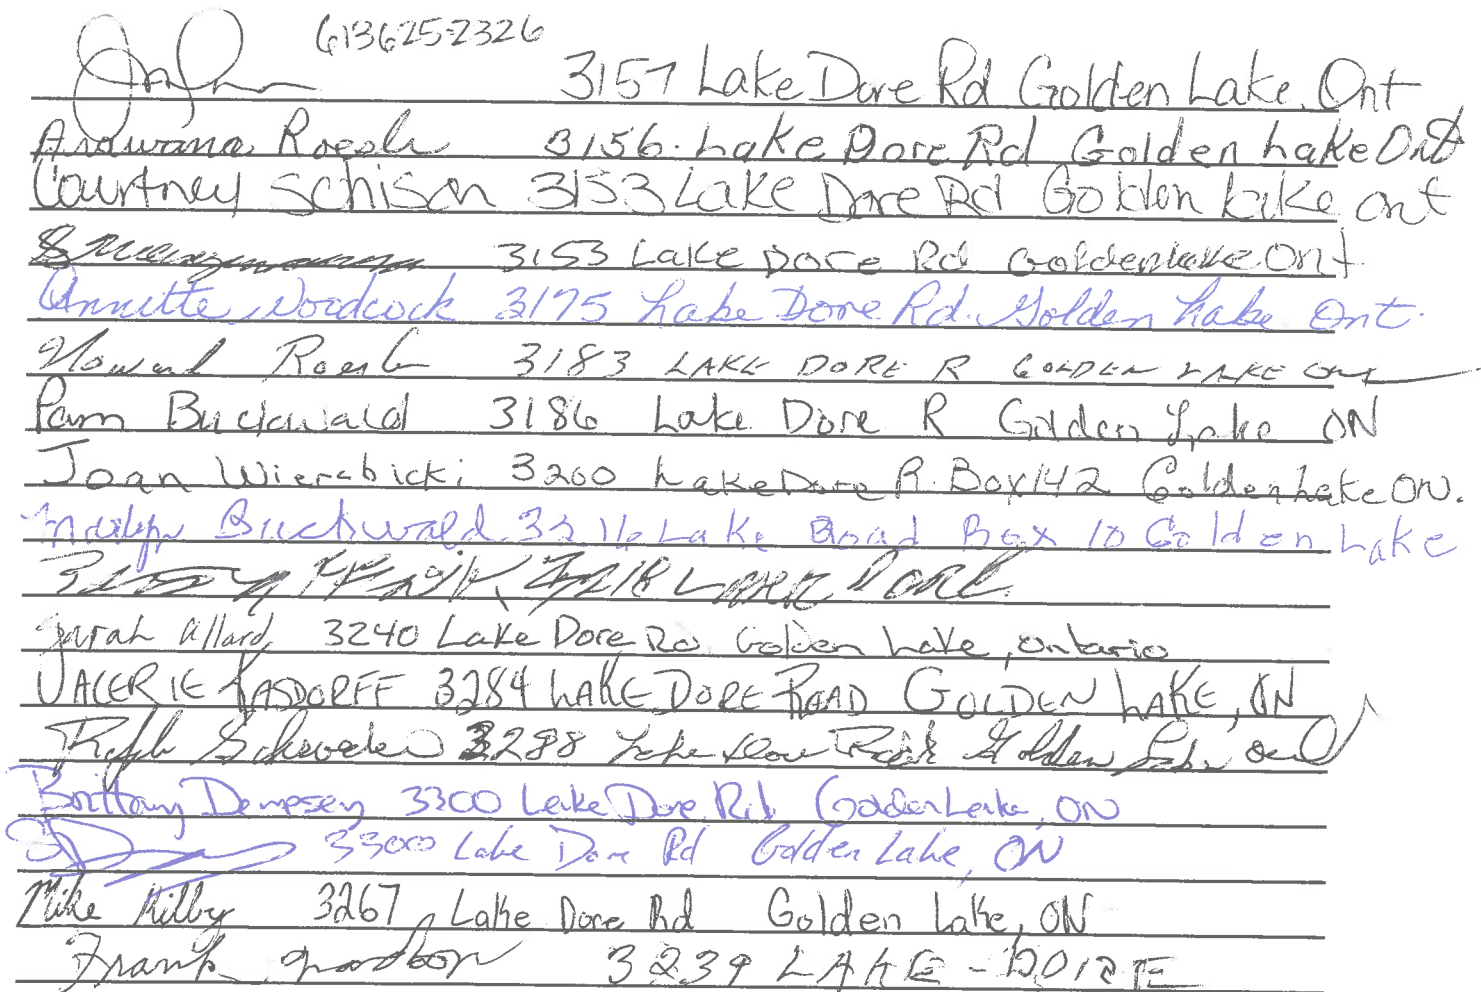 613625-2326
3157 Lake Dore Rd Golden Lake, Ont
Roesler 3156. Lake Dore Rd Golden Lake Ont
Courtney Schison 3153 Lake Dore Rd Golden Lake ont
3153 Lake Dore Rd Golden Lake Ont
Annette Woodcock 3175 Lake Dore Rd. Golden Lake Ont.
Howard Roesler 3183 LAKE DORE R GOLDEN LAKE Ont
Pam Buckwald 3186 Lake Dore R Golden Lake ON
Joan Wierabicki 3200 Lake Dore R. Box 142 Golden Lake ON.
Buckwald 3216 Lake Road Box 10 Golden Lake
LAKE DORE
Sarah Allard, 3240 Lake Dore Rd Golden Lake, Ontario
VALERIE KASDORFF 3284 LAKE DORE ROAD GOLDEN LAKE, ON
3288 Lake Dore Golden Lake Ont
Brittany Dempsey 3300 Lake Dore Rd. Golden Lake, ON
3300 Lake Dore Rd Golden Lake, ON
Mike Kilby 3267 Lake Dore Rd Golden Lake, ON
Frank 3239 LAKE - DORE